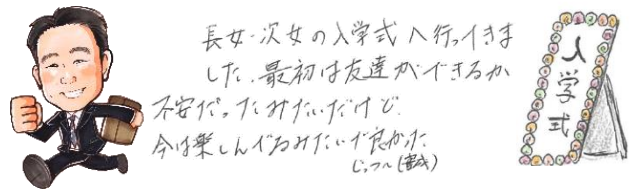 長女・次女の入学式へ行ってきま
した。最初は友達ができるか
不安だったみたいだけど、
今は楽しんでるみたいで良かった
入学式